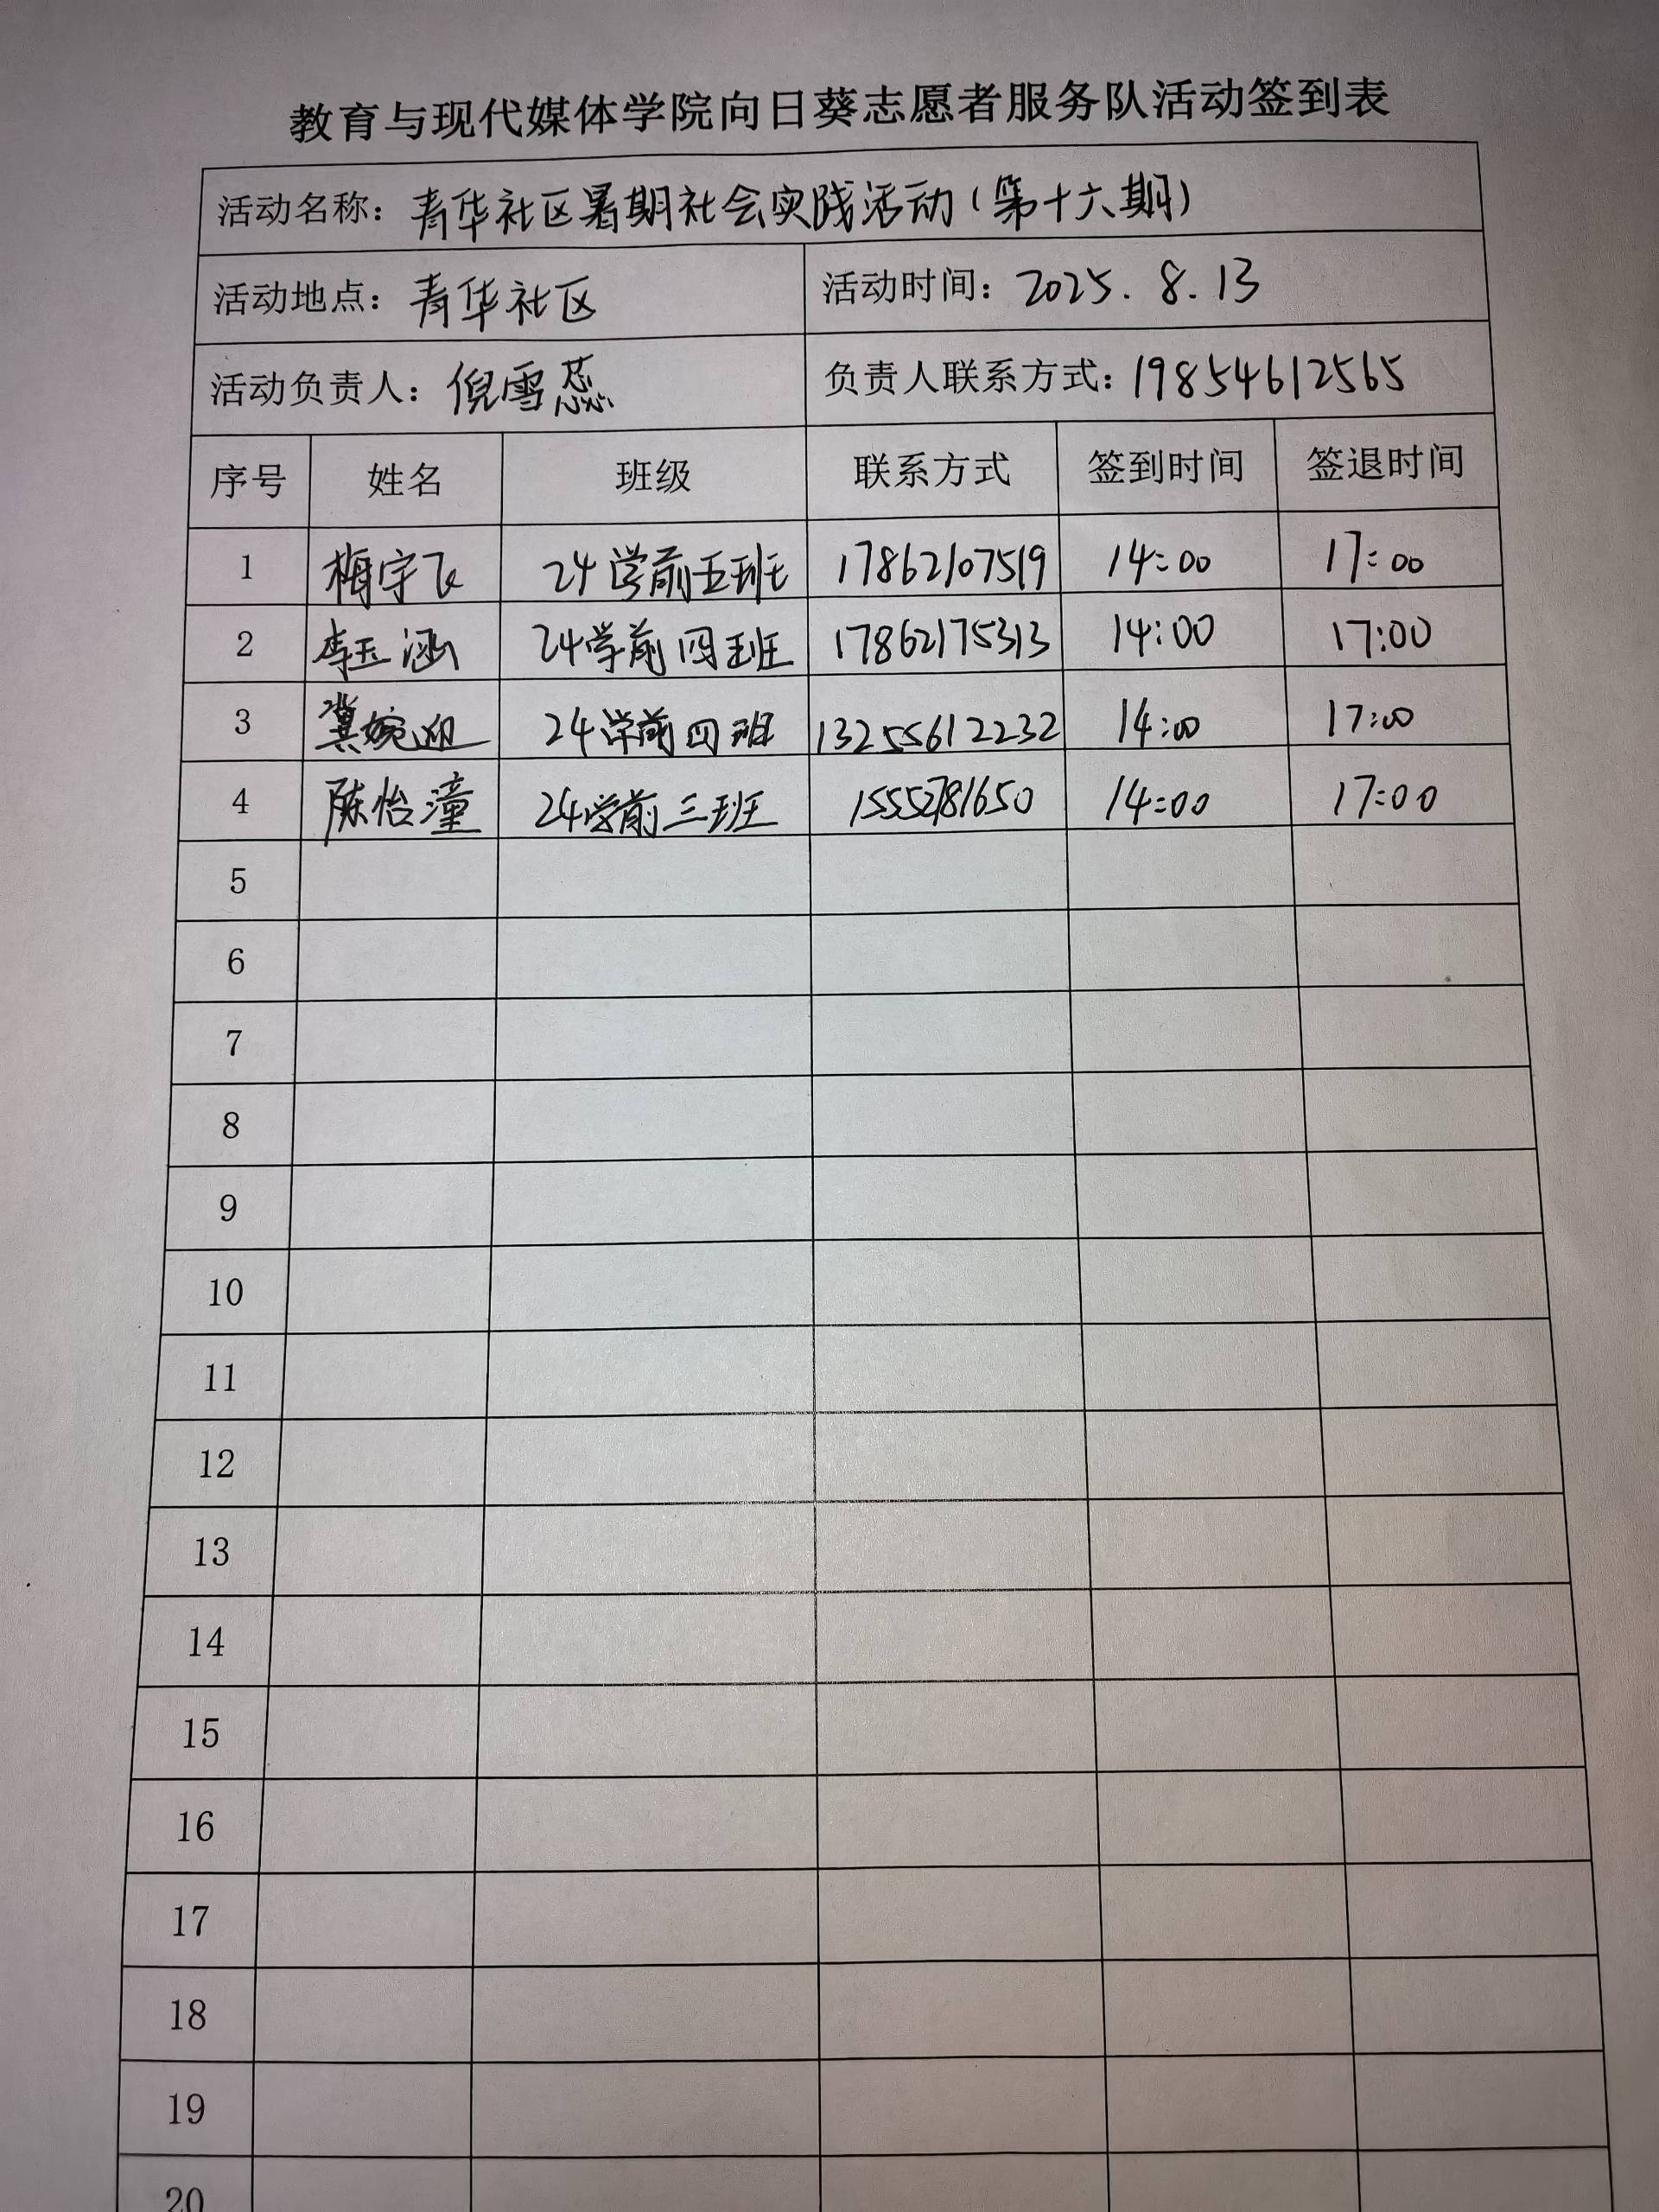 教育与现代媒体学院向日葵志愿者服务队活动签到表
活动名称：青华社区暑期社会实践活动（第十六期）
活动地点：青华社区 活动时间：2025.8.13
活动负责人：倪雪蕊 负责人联系方式：19854612565
序号 姓名 班级 联系方式 签到时间 签退时间
1 梅宇飞 24学前五班 17862107519 14:00 17:00
2 李玉涵 24学前四班 17862175313 14:00 17:00
3 冀婉迎 24学前四班 13255612232 14:00 17:00
4 陈怡潼 24学前三班 15552781650 14:00 17:00
5
6
7
8
9
10
11
12
13
14
15
16
17
18
19
20